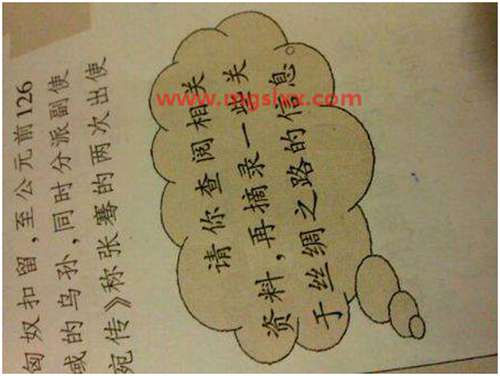 匈奴扣留，至公元前126
域的乌孙，同时分派副使
宛传》称张骞的两次出使
请你查阅相关
资料，再摘录一些关
于丝绸之路的信息
www.mgslxx.com